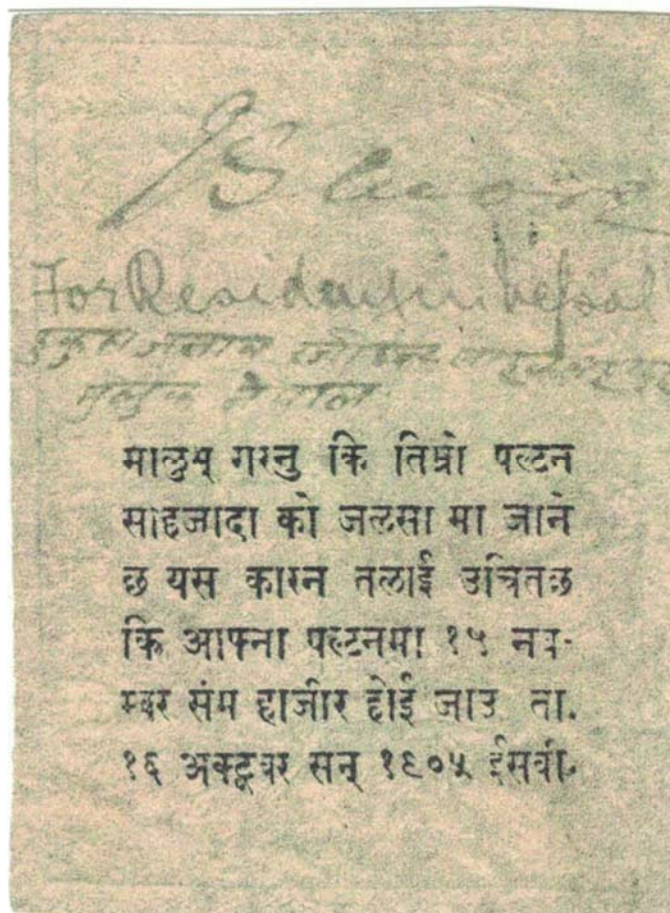 For Resident in Nepal
मुलुक नेपाल
मालुम् गरनु कि तिम्रो पल्टन
साहजादा को जलसा मा जाने
छ यस कारन तलाई उचितछ
कि आफ्ना पल्टनमा १५ नव-
म्बर संम हाजीर होई जाउ ता.
१६ अक्टूबर सन् १९०५ ईसवी.